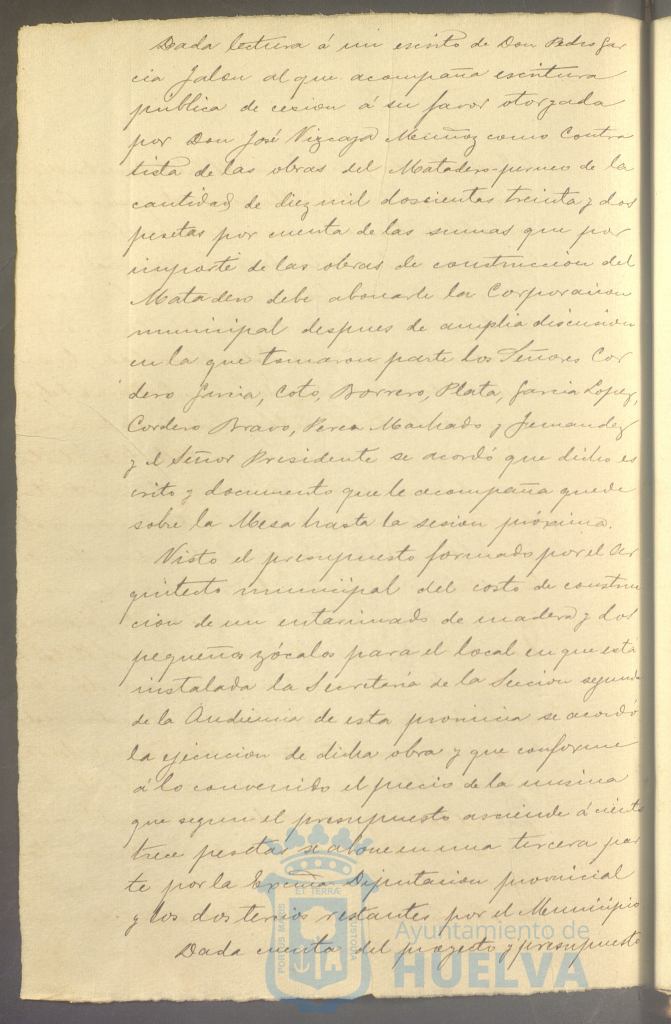 Dada lectura á un escrito de Don Pedro Gar
cia Jalon al que acompaña escritura
pública de cesion á su favor otorgada
por Don José Vizcaya Muñoz como Contra
tista de las obras del Matadero-perneo de la
cantidad de diez mil doscientas treinta y dos
pesetas por cuenta de las sumas que por
importe de las obras de construccion del
Matadero debe abonarle la Corporacion
municipal despues de amplia discusion
en la que tomaron parte los Señores Cor
dero Garcia, Coto, Borrero, Plata, Garcia Lopez,
Cordero Bravo, Perea Machado y Fernandez
y el Señor Presidente se acordó que dicho es
crito y documento que le acompaña quede
sobre la Mesa hasta la sesion próxima.
Visto el presupuesto formado por el Ar
quitecto municipal del costo de construc
cion de un entarimado de madera y dos
pequeños zócalos para el local en que está
instalada la Secretaría de la Seccion segunda
de la Audiencia de esta provincia se acordó
la ejecucion de dicha obra y que conforme
á lo convenido el precio de la misma
que segun el presupuesto asciende á ciento
trece pesetas se abone en una tercera par
te por la Excma Diputacion provincial
y los dos tercios restantes por el Municipio
Dada cuenta del proyecto y presupuesto
PORTUS MARIS ET TERRÆ CUSTODIA
Ayuntamiento de
HUELVA